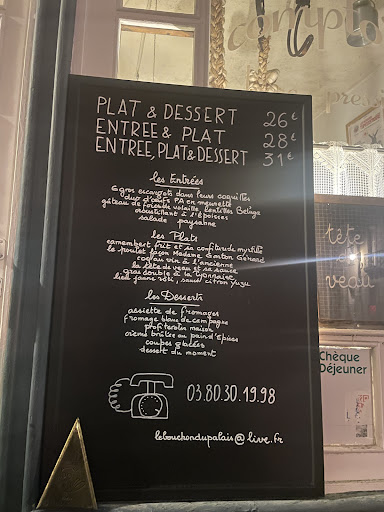 PLAT & DESSERT 26€
ENTREE & PLAT 28€
ENTREE, PLAT & DESSERT 31€
les Entrées
6 gros escargots dans leurs coquilles
duo d'œufs PA en meurette
gâteau de foies de volaille, lentilles Beluga
croustillant à l'époisses
salade paysanne
les Plats
camembert frit et sa confiture de myrtille
le poulet façon Madame Gaston Gérard
coq au vin à l'ancienne
la tête de veau et sa sauce
gras double à la lyonnaise
sauce citron yuzu
les Desserts
assiette de fromages
fromage blanc de campagne
profiteroles maison
crème brûlée au pain d'épices
coupes glacées
dessert du moment
03.80.30.19.98
lebouchondupalais@live.fr
tête
de
veau
Chèque
Déjeuner